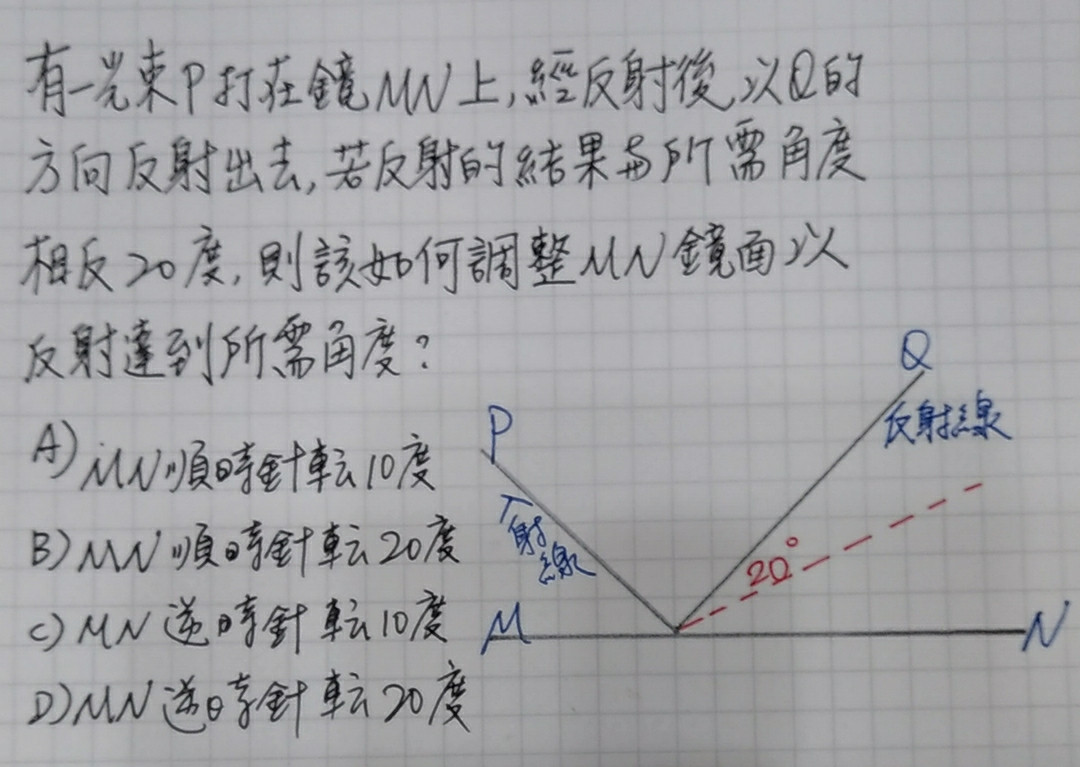 有一光束P打在鏡MN上,經反射後以Q的
方向反射出去,若反射的結果與所需角度
相反20度,則該如何調整MN鏡面以
反射達到所需角度?
A)MN順時針転10度
B)MN順時針転20度
C)MN逆時針転10度
D)MN逆時針転20度
P
Q
入射
線
反射線
20°
M
N